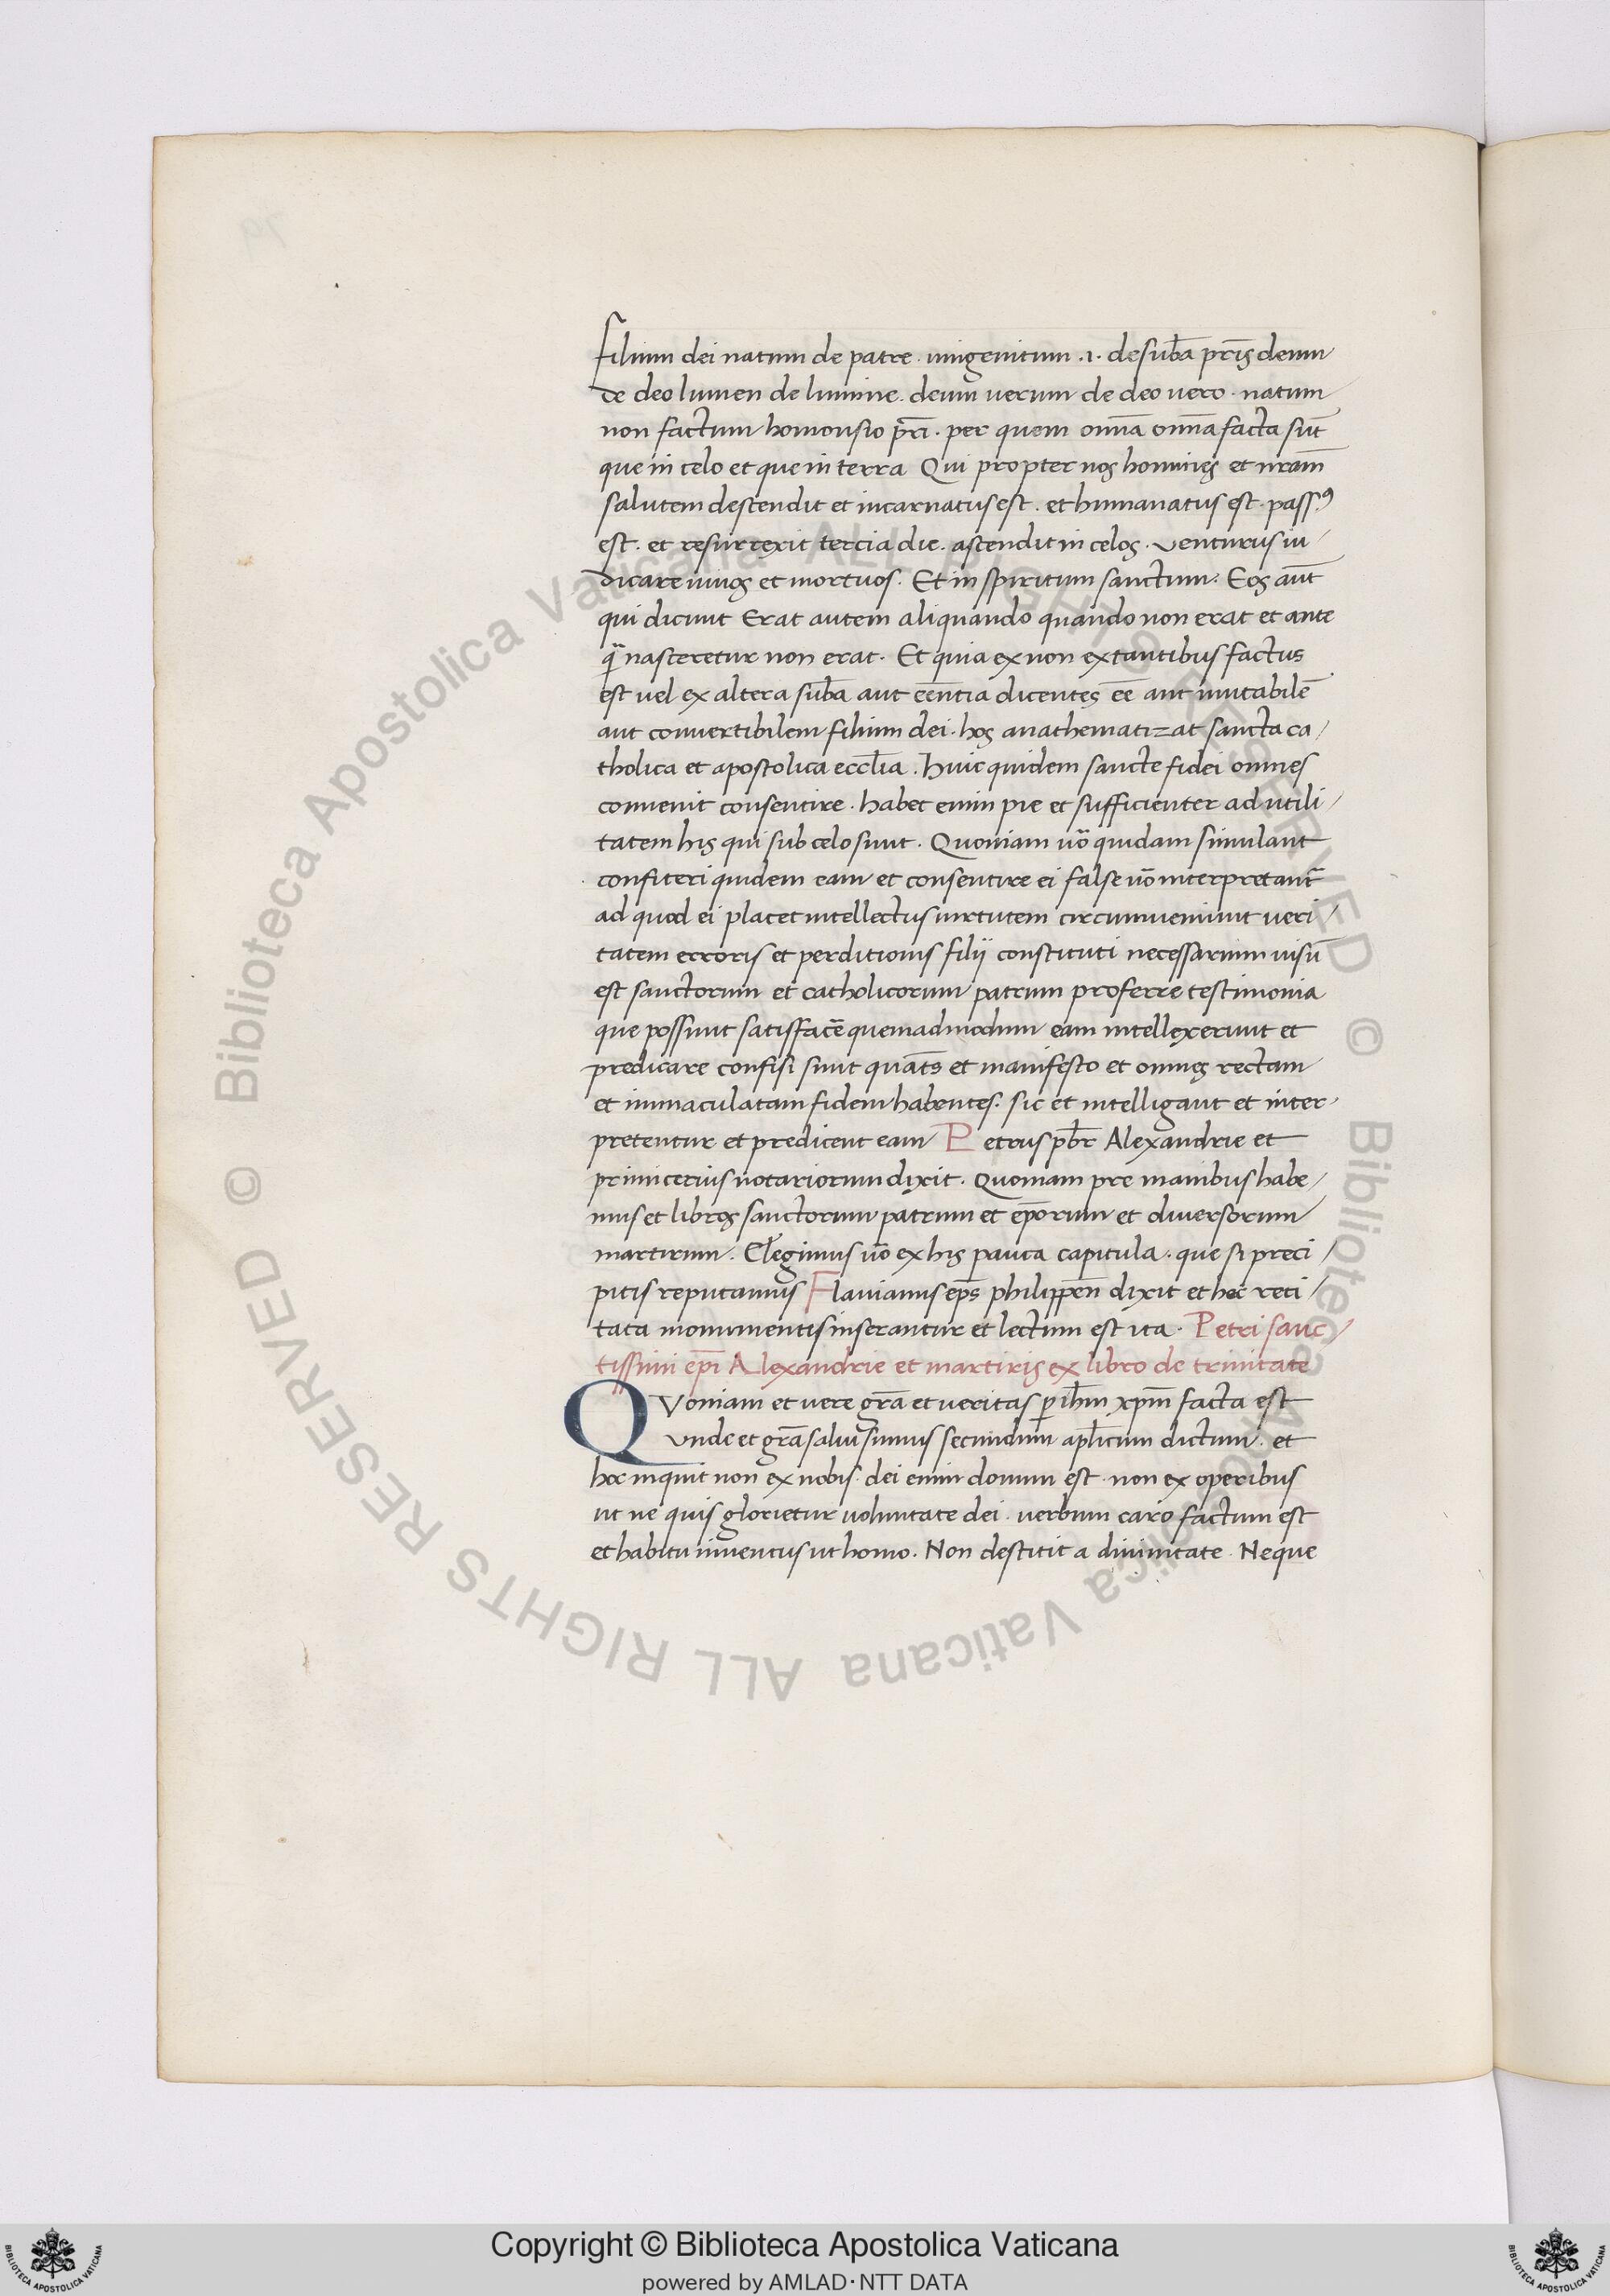 Filium dei natum de patre. unigenitum .i. de sub̄a pr̄is deum
de deo lumen de lumine. deum verum de deo vero. natum
non factum homousio pr̄i. per quem omn̄a omn̄a facta sūt
que in celo et que in terra Qui propter nos homines et nr̄am
salutem descendit et incarnatus est. et humanatus est. pass9
est. et resurrexit tercia die. ascendit in celos. venturus iu/
dicare vivos et mortuos. Et in spiritum sanctum. Eos aūt
qui dicunt Erat autem aliquando quando non erat et ante
q̄ nasceretur non erat. Et quia ex non extantibus factus
est vel ex altera sub̄a aut eēntia dicentes eē aut mutabilē
aut convertibilem filium dei. hos anathematizat sancta ca/
tholica et apostolica eccl̄ia. Huic quidem sancte fidei omnes
convenit consentire. habet enim pie et sufficienter ad utili/
tatem his qui sub celo sunt. Quoniam uō quidam simulant
confiteri quidem eam et consentire ei false uō interpretant̄
ad quod ei placet intellectus virtutem circumveniunt veri/
tatem erroris et perditionis filii constituti necessarium visū
est sanctorum et catholicorum patrum proferre testimonia
que possunt satisfacē quemadmodum eam intellexerunt et
predicare confisi sunt quat̄s et manifesto et omnes rectam
et immaculatam fidem habentes. sic et intelligant et inter/
pretentur et predicent eam Petrus pb̄r Alexandrie et
primicerius notariorum dixit. Quoniam pre manibus habe/
mus et libros sanctorum patrum et ep̄orum et diversorum
martirum. Elegimus uō ex his pauca capitula. que si preci/
pitis reputamus Flavianus ep̄s philippen̄ dixit et hec reci/
tata monumentis inserantur et lectum est ita. Petri sanc/
tissimi ep̄i Alexandrie et martiris ex libro de trinitate
QVoniam et vere gr̄a et veritas p̱ ih̄m xp̄m facta est
Vnde et gr̄a salui sumus secundum apl̄icum dictum. et
hoc inquit non ex nobis. dei enim donum est. non ex operibus
ut ne quis glorietur voluntate dei. verbum caro factum est
et habitu inventus ut homo. Non destitit a divinitate. Neque
© Biblioteca Apostolica Vaticana ALL RIGHTS RESERVED © Biblioteca Apostolica Vaticana ALL RIGHTS RESERVED
Copyright © Biblioteca Apostolica Vaticana
powered by AMLAD·NTT DATA
BIBLIOTECA APOSTOLICA VATICANA
BIBLIOTECA APOSTOLICA VATICANA